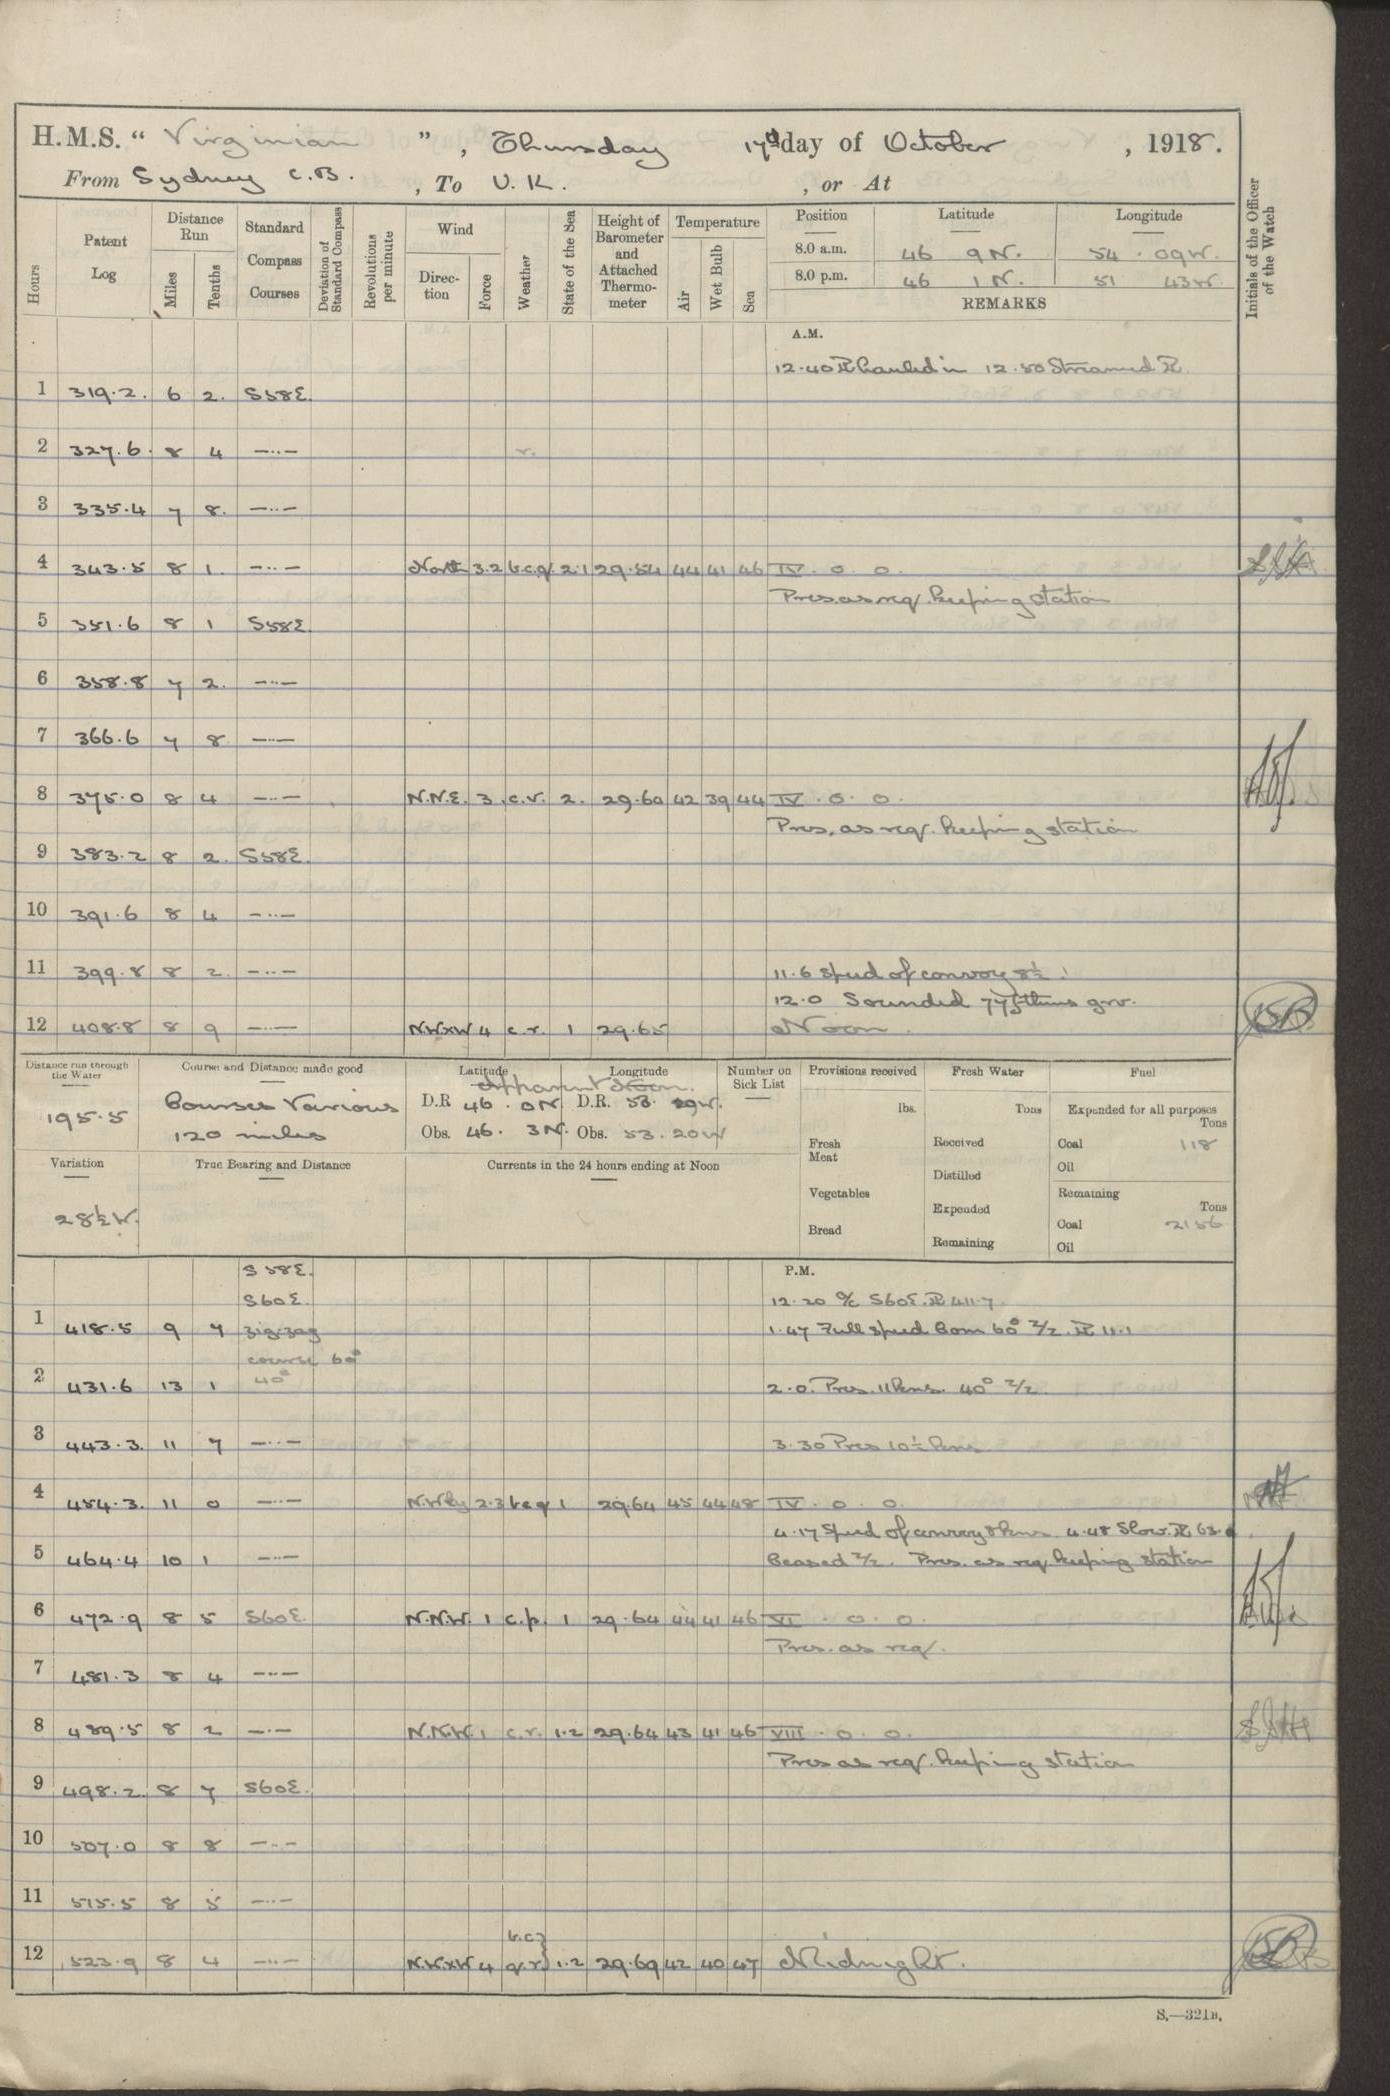 H.M.S. " Virginian " , Thursday 17th day of October , 1918.
From Sydney C.B. , To U.K. , or At
Hours
Patent Log
Distance Run
Miles
Tenths
Standard Compass Courses
Deviation of Standard Compass
Revolutions per minute
Wind
Direction
Force
Weather
State of the Sea
Height of Barometer and Attached Thermometer
Temperature
Air
Wet Bulb
Sea
Position Latitude Longitude
8.0 a.m. 46 9 N. 54 . 09 W.
8.0 p.m. 46 1 N. 51 43 W.
REMARKS
Initials of the Officer of the Watch
A.M.
12.40 PL hauled in 12.50 Streamed PL
1 319.2. 6 2. S58E.
2 327.6. 8 4 —··— r.
3 335.4 7 8. —··—
4 343.5 8 1. —··— North 3.2 b.c.q. 2.1 29.54 44 41 46 IV. 0. 0.
Pres. as req. keeping station
5 351.6 8 1 S58E
6 358.8 7 2. —··—
7 366.6 7 8. —··—
8 375.0 8 4 —··— N.N.E. 3 c.v. 2. 29.60 42 39 44 IV. 0. 0.
Pres. as req. keeping station
9 383.2 8 2. S58E.
10 391.6 8 4 —··—
11 399.8 8 2. —··— 11.6 Speed of convoy 8½
12.0 Sounded 77 fthms grv.
12 408.8 8 9 —··— N.W.xW 4 c.r. 1 29.65 Noon.
Distance run through the Water
195.5
Course and Distance made good
Courses Various
120 miles
Latitude Longitude
Apparent Noon.
D.R 46. 0 N. D.R. 53. 29 W.
Obs. 46. 3 N. Obs. 53. 20 W
Number on Sick List
Provisions received
lbs.
Fresh Meat
Vegetables
Bread
Fresh Water
Tons
Received
Distilled
Expended
Remaining
Fuel
Expended for all purposes
Tons
Coal 118
Oil
Remaining
Tons
Coal 2156
Oil
Variation
28½ W.
True Bearing and Distance
Currents in the 24 hours ending at Noon
P.M.
S58E.
S60E. 12.20 a/c S60E. PL 411.7
1 418.5 9 7 zig-zag 1.47 Full speed Com 60° Z/Z. PL 11.1
course 60°
2 431.6 13 1 40° 2.0. Pres. 11 kns. 40° Z/Z
3 443.3. 11 7 —··— 3.30 Pres 10½ kns
4 454.3. 11 0 —··— N.Wly 2.3 b.c.q 1 29.64 45 44 48 IV. 0. 0.
4.17 Speed of convoy 8 kns. 4.48 Slow. PL 63.
5 464.4 10 1 —··— Ceased Z/Z. Pres. as req. keeping station
6 472.9 8 5 S60E. N.N.W. 1 c.p. 1 29.64 44 41 46 VI. 0. 0.
Pres. as req.
7 481.3 8 4 —··—
8 489.5 8 2 —··— N.N.W. 1 c.r. 1.2 29.64 43 41 46 VIII. 0. 0.
Pres as req. keeping station
9 498.2. 8 7 S60E.
10 507.0 8 8 —··—
11 515.5 8 5 —··—
b.c.
12 523.9 8 4 —··— N.W.xW 4 q.r. 1.2 29.69 42 40 47 Midnight.
S.—321B.